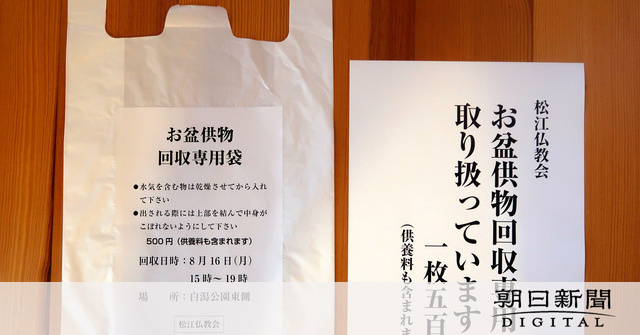 お盆供物
回収専用袋
●水気を含む物は乾燥させてから入れ
て下さい
●出される際には上部を結んで中身が
こぼれないようにして下さい
500円（供養料も含まれます）
回収日時：8月16日(月)
15時～19時
場　所：白潟公園東側
松江仏教会
松江仏教会
お盆供物回収専用
取り扱っています
一枚五百
（供養料も含まれま
朝日新聞
DIGITAL